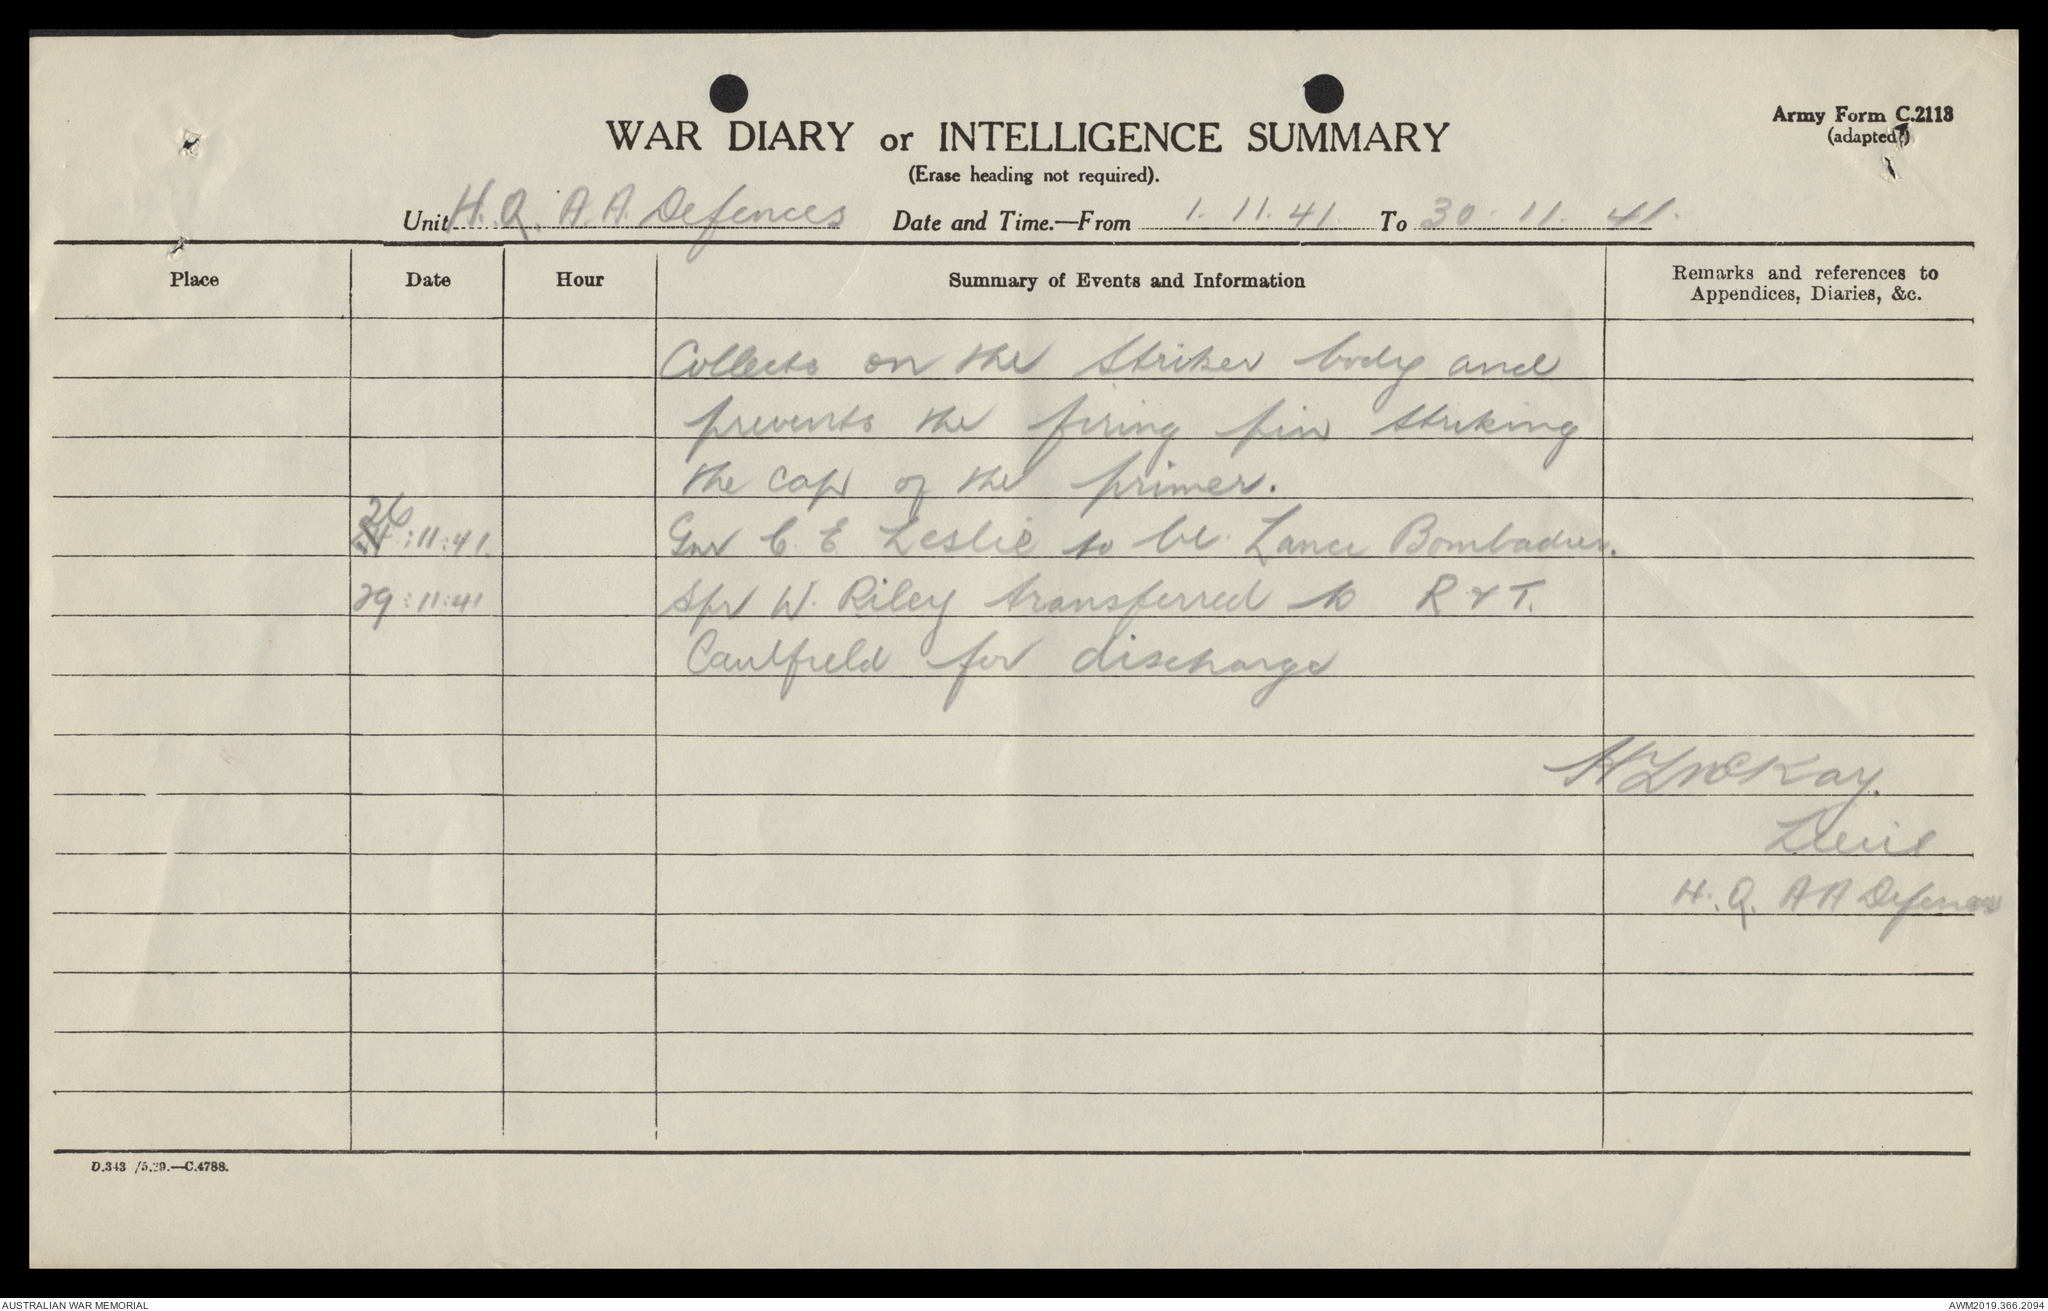 Army Form C.2118
(adapted)
WAR DIARY or INTELLIGENCE SUMMARY
(Erase heading not required).
Unit H. Q. A. A. Defences Date and Time.—From 1. 11. 41. To 30. 11. 41.
Place Date Hour Summary of Events and Information Remarks and references to
Appendices, Diaries, &c.
Collects on the Striker body and
prevents the firing pin striking
the cap of the primer.
26:11:41. Gnr C. E Leslie to be Lance Bombadier.
29:11:41 Spr W. Riley transferred to R & T.
Caulfield for discharge
McKay.
Lieut
H. Q. A A Defences
D.343 /5.39.—C.4788.
AUSTRALIAN WAR MEMORIAL
AWM2019.366.2094